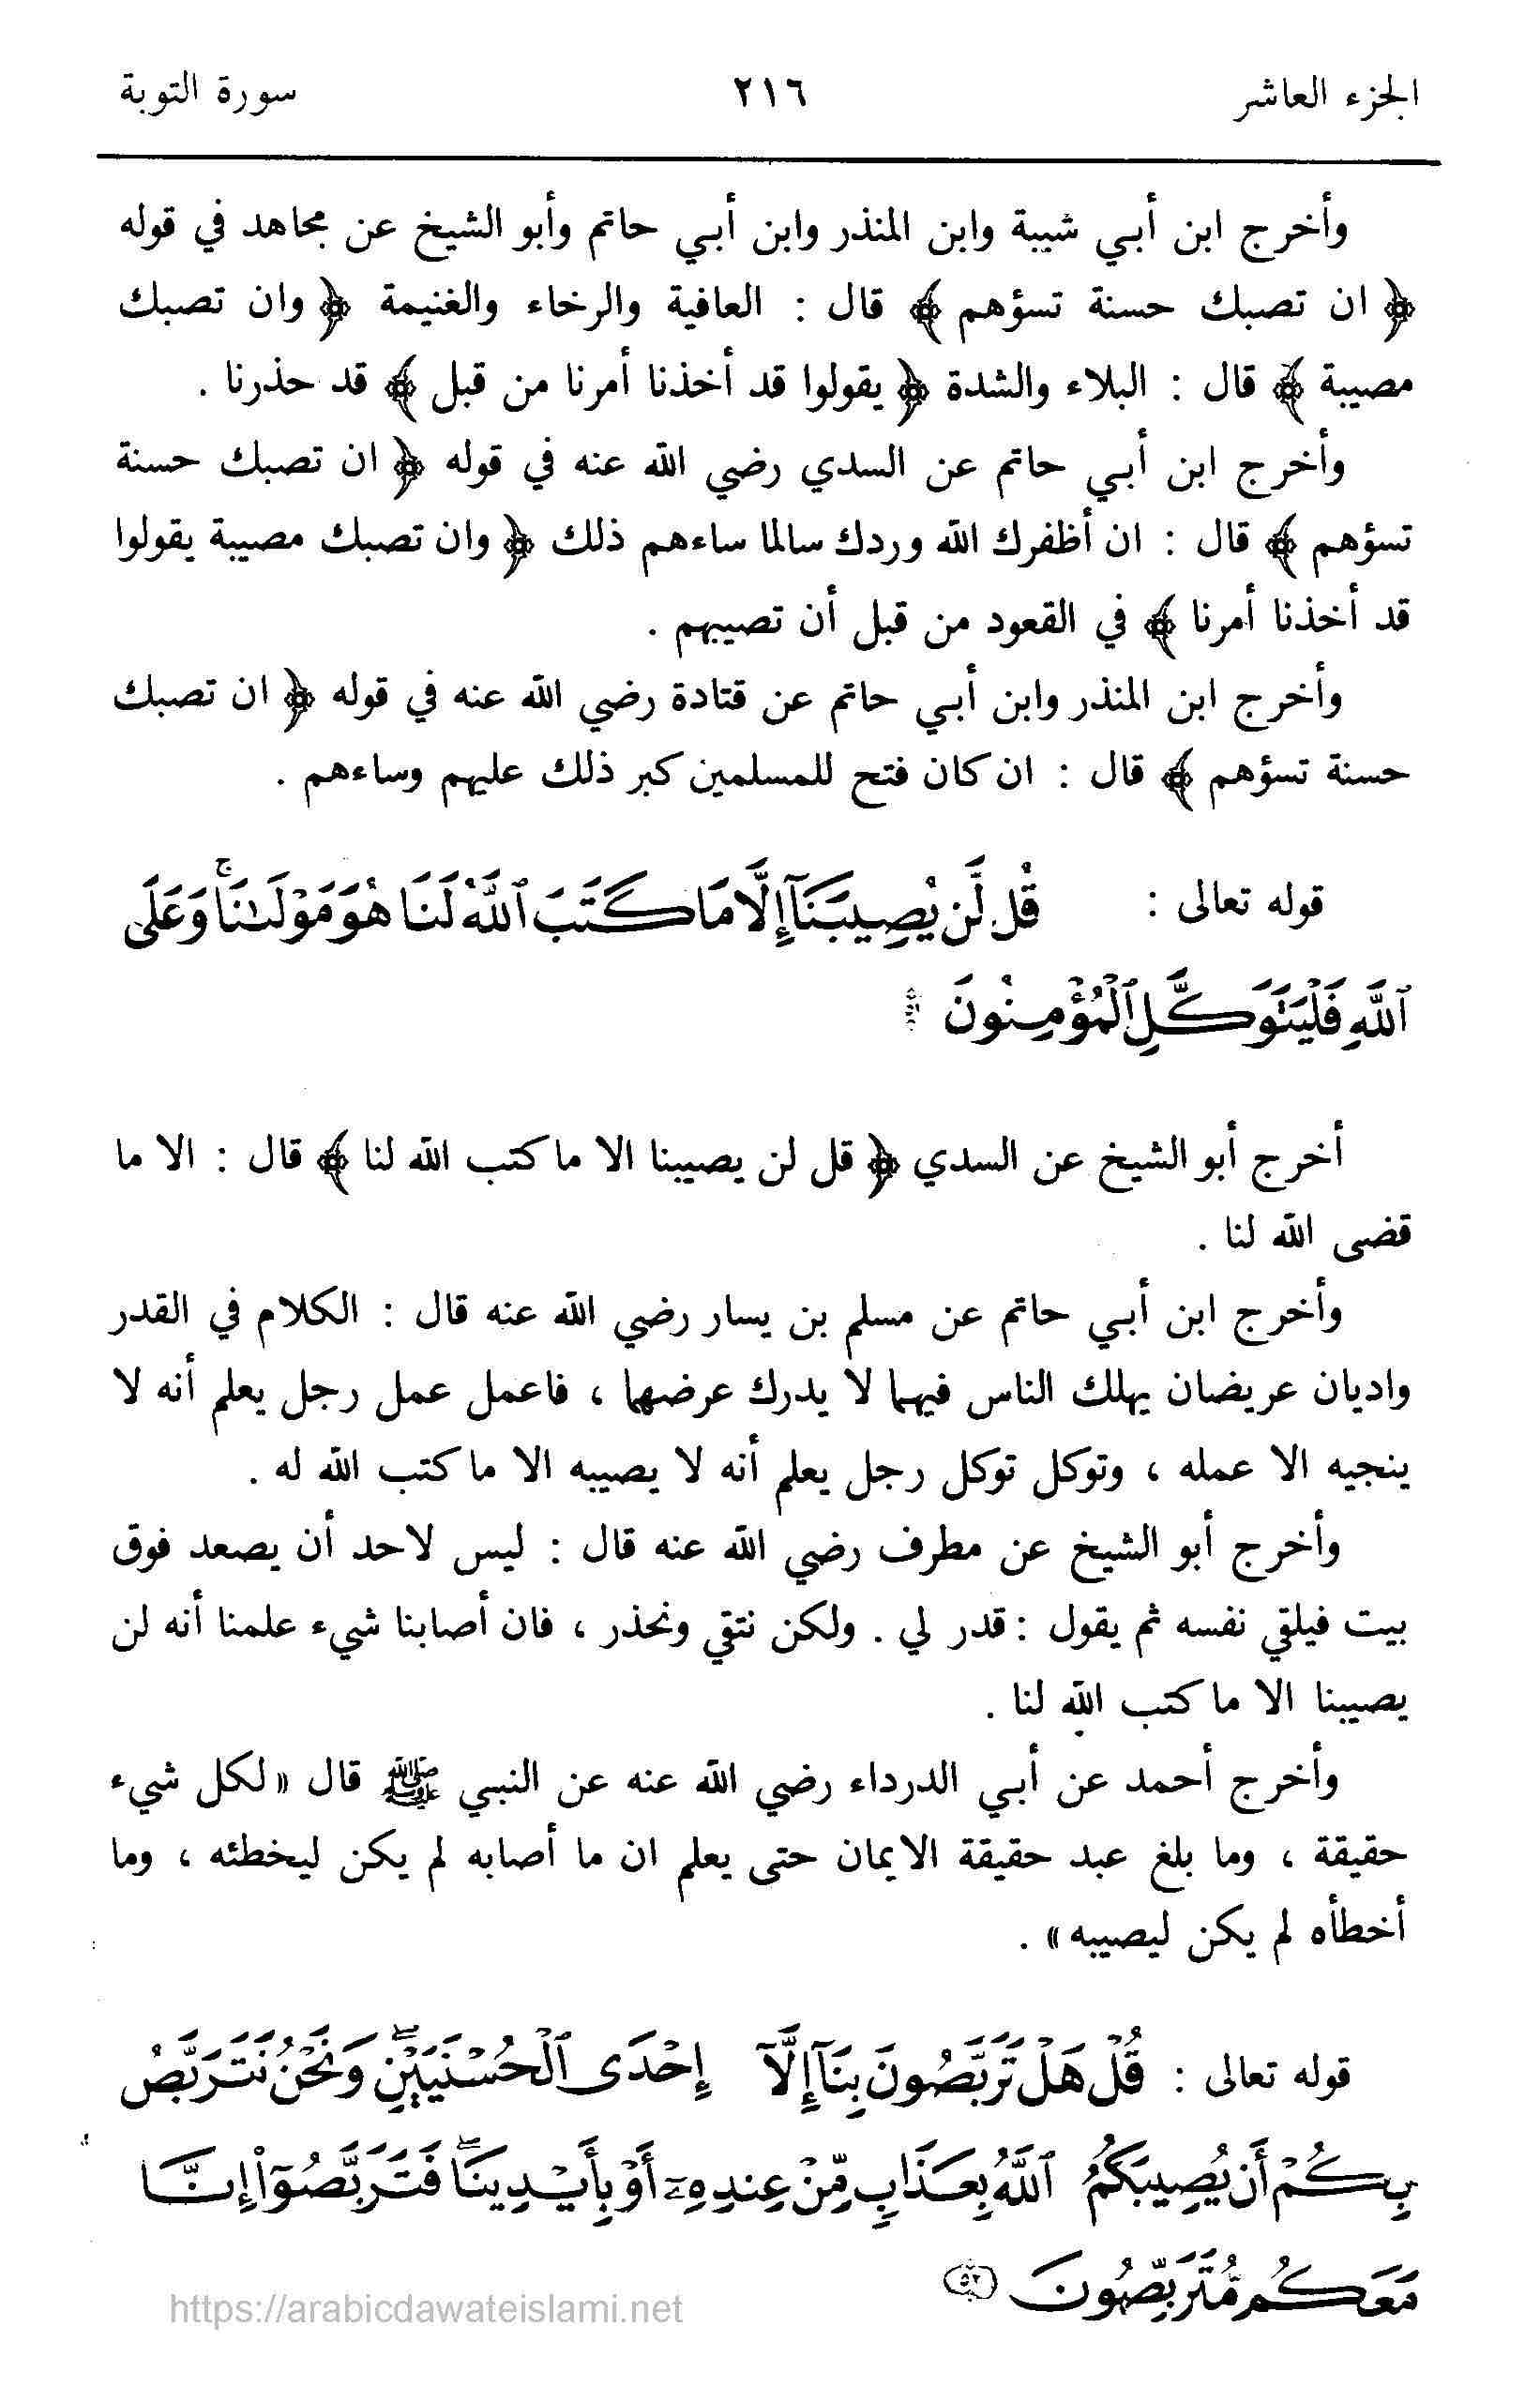 الجزء العاشر ٢١٦ سورة التوبة
وأخرج ابن أبي شيبة وابن المنذر وابن أبي حاتم وأبو الشيخ عن مجاهد في قوله
﴿ ان تصبك حسنة تسؤهم ﴾ قال : العافية والرخاء والغنيمة ﴿ وان تصبك
مصيبة ﴾ قال : البلاء والشدة ﴿ يقولوا قد أخذنا أمرنا من قبل ﴾ قد حذرنا .
وأخرج ابن أبي حاتم عن السدي رضي الله عنه في قوله ﴿ ان تصبك حسنة
تسؤهم ﴾ قال : ان أظفرك الله وردك سالما ساءهم ذلك ﴿ وان تصبك مصيبة يقولوا
قد أخذنا أمرنا ﴾ في القعود من قبل أن تصيبهم .
وأخرج ابن المنذر وابن أبي حاتم عن قتادة رضي الله عنه في قوله ﴿ ان تصبك
حسنة تسؤهم ﴾ قال : ان كان فتح للمسلمين كبر ذلك عليهم وساءهم .
قوله تعالى : قُل لَّن يُصِيبَنَآ إِلَّا مَا كَتَبَ ٱللَّهُ لَنَا هُوَ مَوْلَىٰنَا ۚ وَعَلَى
ٱللَّهِ فَلْيَتَوَكَّلِ ٱلْمُؤْمِنُونَ
أخرج أبو الشيخ عن السدي ﴿ قل لن يصيبنا الا ما كتب الله لنا ﴾ قال : الا ما
قضى الله لنا .
وأخرج ابن أبي حاتم عن مسلم بن يسار رضي الله عنه قال : الكلام في القدر
واديان عريضان يهلك الناس فيهما لا يدرك عرضهما ، فاعمل عمل رجل يعلم أنه لا
ينجيه الا عمله ، وتوكل توكل رجل يعلم أنه لا يصيبه الا ما كتب الله له .
وأخرج أبو الشيخ عن مطرف رضي الله عنه قال : ليس لاحد أن يصعد فوق
بيت فيلقي نفسه ثم يقول : قدر لي . ولكن نتقي ونحذر ، فان أصابنا شيء علمنا أنه لن
يصيبنا الا ما كتب الله لنا .
وأخرج أحمد عن أبي الدرداء رضي الله عنه عن النبي ﷺ قال « لكل شيء
حقيقة ، وما بلغ عبد حقيقة الايمان حتى يعلم ان ما أصابه لم يكن ليخطئه ، وما
أخطأه لم يكن ليصيبه » .
قوله تعالى : قُلْ هَلْ تَرَبَّصُونَ بِنَآ إِلَّآ إِحْدَى ٱلْحُسْنَيَيْنِ ۖ وَنَحْنُ نَتَرَبَّصُ
بِكُمْ أَن يُصِيبَكُمُ ٱللَّهُ بِعَذَابٍ مِّنْ عِندِهِۦٓ أَوْ بِأَيْدِينَا ۖ فَتَرَبَّصُوٓا۟ إِنَّا
مَعَكُم مُّتَرَبِّصُونَ ٥٢
https://arabicdawateislami.net